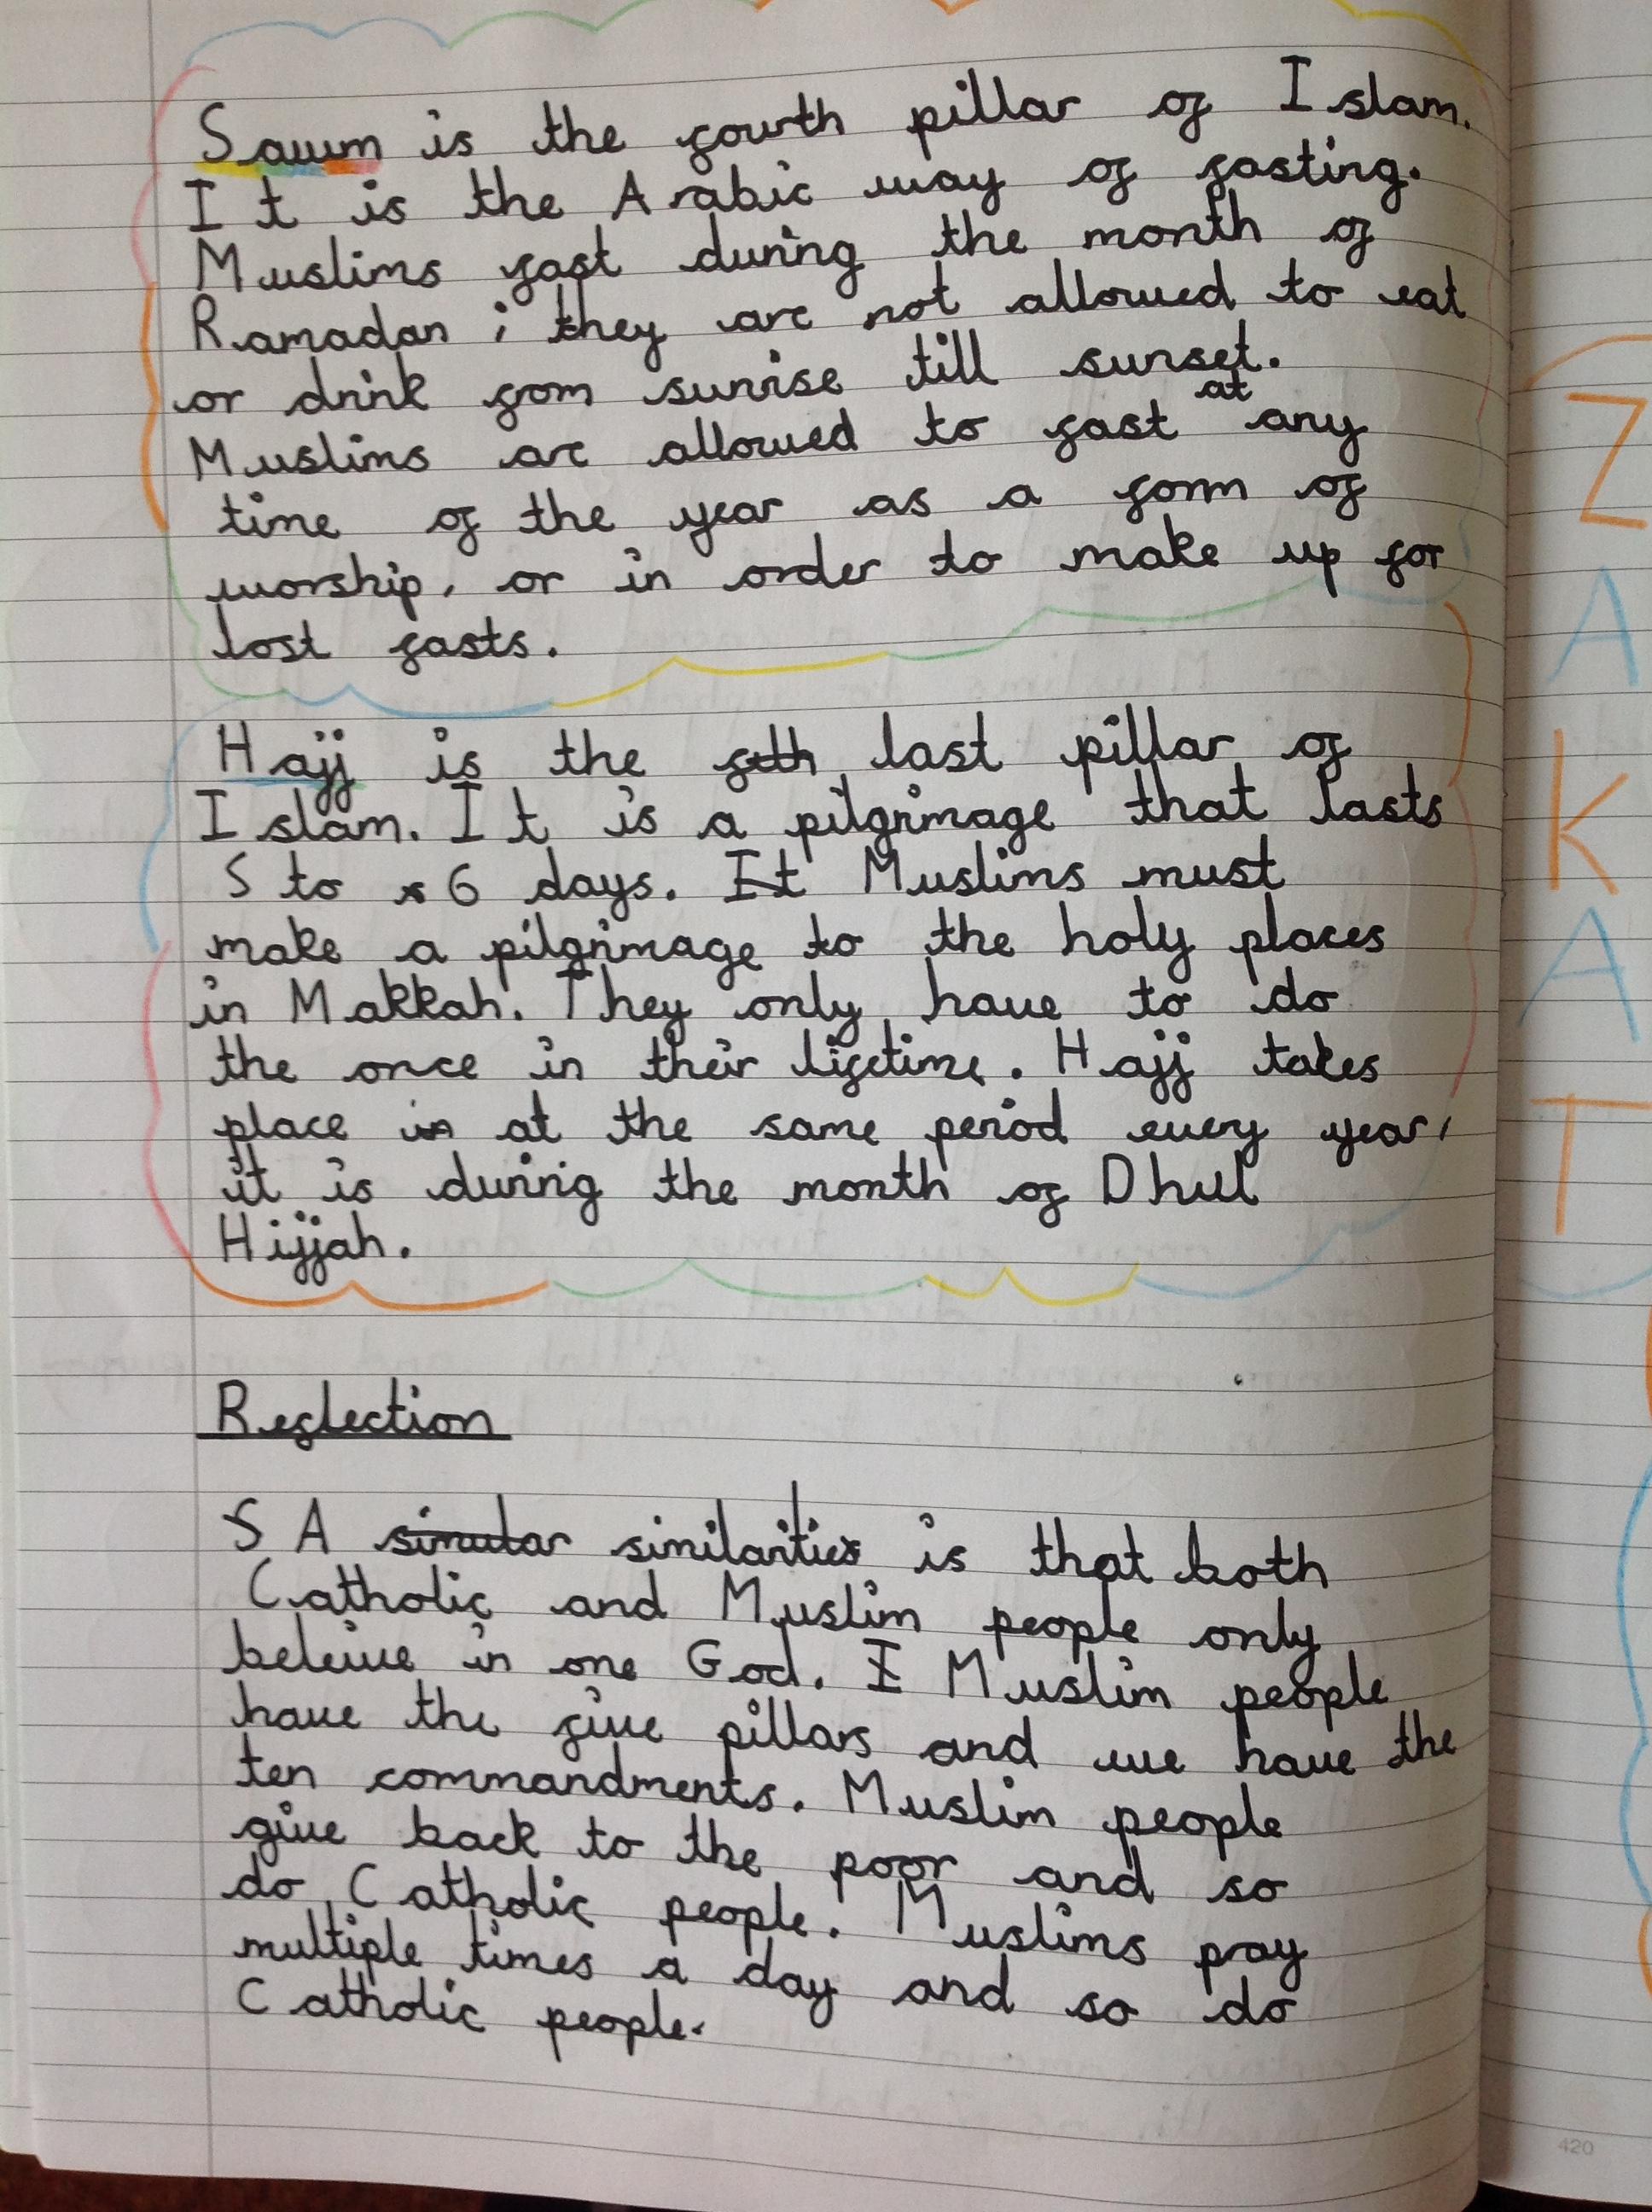 Sawm is the fourth pillar of Islam.
It is the Arabic way of fasting.
Muslims fast during the month of
Ramadan ; they are not allowed to eat
or drink fom sunrise till sunset.
at
Muslims are allowed to fast any
time of the year as a form of
worship, or in order to make up for
lost fasts.
Hajj is the last pillar of
Islam. It is a pilgrimage that lasts
5 to 6 days. It Muslims must
make a pilgrimage to the holy places
in Makkah. They only have to do
the once in their lifetime. Hajj takes
place in at the same period every year,
it is during the month of Dhul
Hijjah.
Reflection
S A simular similarities is that both
Catholic and Muslim people only
beleive in one God. I Muslim people
have the five pillars and we have the
ten commandments. Muslim people
give back to the poor and so
do Catholic people. Muslims pray
multiple times a day and so do
Catholic people.
Z
A
K
A
T
420